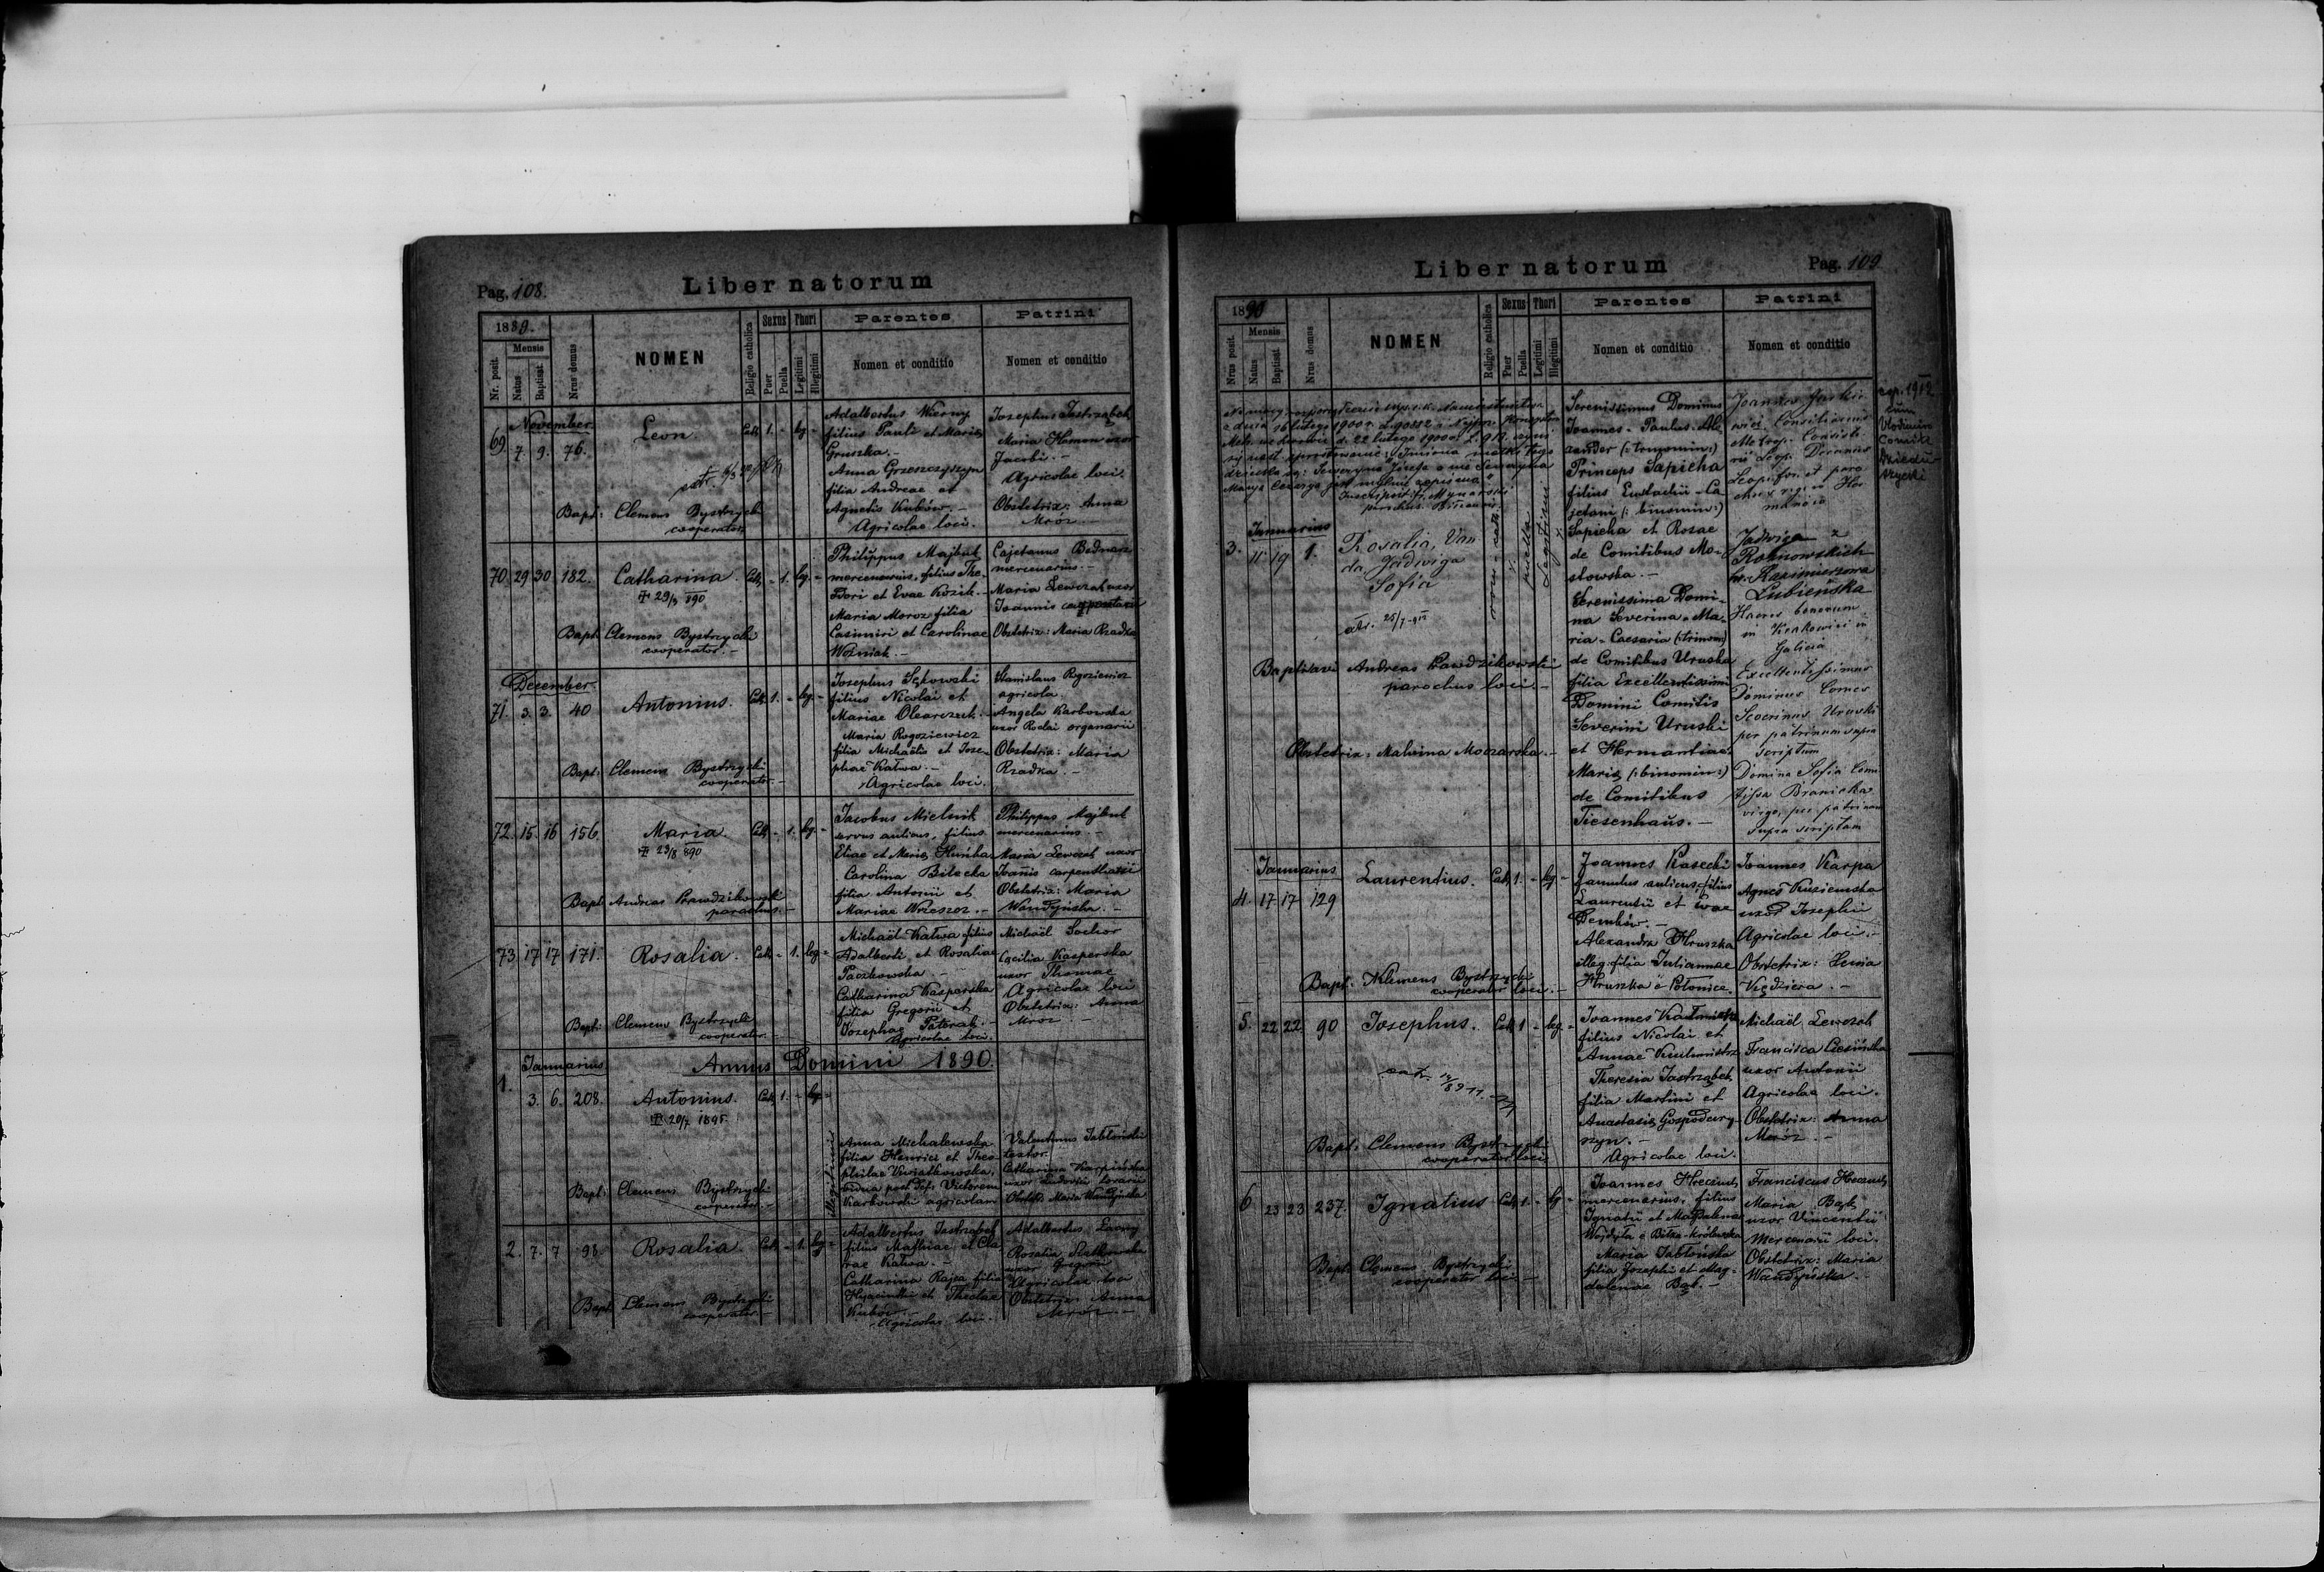 Pag. 108.
Liber natorum
1889.
Nr. posit.
Mensis
Natus
Baptisat
Nrus domus
NOMEN
Religio catholica
Sexus
Puer
Puella
Thori
Legitimi
Illegitimi
Parentes
Nomen et conditio
Patrini
Nomen et conditio
November
69. 7. 9. 76.
Leon
Cath 1. - leg. -
Adalbertus Wierny
filius Pauli et Mariae
Gruszka. -
Anna Grzeszczyszyn
filia Andreae et
Agnetis Kubów. -
Agricolae loci.
Josephus Jastrząbek
Maria Hamon uxor
Jacobi. -
Agricolae loci.
Obstetrix: Anna
Mróz. -
Bapt: Clemens Bystrzycki
cooperator
70. 29 30 182.
Catharina.
✝ 29/3 890
Cath. - 1. leg. -
Philippus Majbut
mercenarius, filius The-
odori et Evae Kozik. -
Maria Moroz filia
Casimiri et Carolinae
Woźniak. -
Cajetanus Bednarz
mercenarius. -
Maria Lewczak uxor
Joannis carpentarii
Obstetrix: Maria Rzadka
Bapt: Clemens Bystrzycki
cooperator. -
December
71. 3. 3. 40
Antonius.
Cath 1. - leg. -
Josephus Sękowski
filius Nicolai et
Mariae Olearczuk. -
Maria Rogoziewicz
filia Michaëlis et Jose-
phae Kałwa. -
Agricolae loci.
Stanislaus Rogoziewicz
agricola.
Angela Karbowska
uxor organarii
Obstetrix: Maria
Rzadka. -
Bapt: Clemens Bystrzycki
cooperator. -
72. 15. 16 156.
Maria.
✝ 23/8 890
Cath. - 1. leg. -
Jacobus Mielnik
servus aulicus, filius
Eliae et Mariae
Carolina Bilecka
filia Antonii et
Mariae Wrzeszcz. -
Philippus Majbut
mercenarius. -
Maria Lewczak uxor
Joannis carpentarii
Obstetrix: Maria
Wandzyńska. -
Bapt: Andreas Prawdzikowski
parochus. -
73. 17 17 171.
Rosalia.
Cath. - 1. leg. -
Michaël Kałwa filius
Adalberti et Rosaliae
Paczkowska. -
Catharina Kasperska
filia Gregorii et
Josephae Paterak. -
Agricolae loci.
Michaël Sochor
Caecilia Kasperska
uxor Thomae
Agricolae loci
Obstetrix: Anna
Mróz -
Bapt: Clemens Bystrzycki
cooperator. -
Januarius
Annus Domini 1890.
1. 3. 6. 208.
Antonius.
✝ 20/7 1895
Cath. 1. - leg. -
illegitimi
Anna Michalewska
filia Henrici et Theo-
philae Kwiatkowska,
vidua post def. Victorem
Karbowski agricolam
Valentinus Jabłoński
textor.
Catharina Karpińska
uxor Ludovici
Obstetr. Maria Wandzyńska
Bapt: Clemens Bystrzycki
cooperator. -
2. 7. 7 98
Rosalia.
Cath. - 1. leg. -
Adalbertus Jastrząbek
filius Mathiae et Cla-
rae Kałwa. -
Catharina Rajca filia
Hyacinthi et Theclae
Kubów. -
Agricolae loci.
Adalbertus
Rosalia
uxor Gregorii
Agricolae loci
Obstetrix: Anna
Mróz. -
Bapt: Clemens Bystrzycki
cooperator. -
Liber natorum
Pag. 109
1890
Nrus posit.
Mensis
Natus
Baptisat.
Nrus domus
NOMEN
Religio catholica
Sexus
Puer
Puella
Thori
Legitimi
Illegitimi
Parentes
Nomen et conditio
Patrini
Nomen et conditio
z dnia 16 lutego 1900 r. L. i Najprz. Konsystorza
Metr. we Lwowie d. 22 lutego 1900
Imiona matki tego
dziecka są: Seweryna Józefa a nie Seweryna
Marya Cezarya jak mylnie zapisano
Januarius
3. 11. 19 1.
Rosalia, Van-
da, Jadwiga
Sofia
puella
Legitimi
Serenissimus Dominus
Joannes-Paulus-Ale-
xander (: trinomin:)
Princeps Sapieha
filius Eustachii-Ca-
jetani (: binomin:)
Sapieha et Rosae
de Comitibus Mo-
stowska. -
Serenissima Domi-
na Severina-Ma-
ria-Caesaria (: trinom:)
de Comitibus Uruska
filia Excellentissimi
Domini Comitis
Severini Uruski
et Hermantiae
Mariae (: binomin:)
de Comitibus
Tiesenhaus. -
Joannes
Consiliarius
Metrop. Consisto-
rii
Jadwiga z
Kazimierzowa
Łubieńska
Haeres bonorum
in Krakowiec in
Galicia
Excellentissimus
Dominus Comes
Severinus Uruski
per patrinum supra
scriptum
Domina Sofia Comi-
tissa Branicka
virgo, per patrinam
supra scriptam
cop. 1912
cum
Vlodimiro
Comite
Dziedu-
szycki
Baptisavi Andreas Prawdzikowski
parochus loci. -
Obstetrix: Malvina Moczarska. -
Januarius
4. 17 17 129
Laurentius.
Cath 1. - leg. -
Joannes Kasecki
famulus aulicus, filius
Laurentii et Evae
Dembów. -
Alexandra Hruszka
illeg. filia Juliannae
Hruszka è Potonica.
Joannes Karpa
Agnes Kuziemska
uxor Josephi
Agricolae loci. -
Obstetrix: Xenia
Kędziera. -
Bapt: Klemens Bystrzycki
cooperator loci. -
5. 22 22 90
Josephus.
Cath 1 - leg. -
filius Nicolai et
Annae
Theresia Jastrząbek
filia Martini et
Anastasiae Gospodary-
szyn. -
Agricolae loci.
Michaël Lewczak
Francisca Ciesińska
uxor Antonii
Agricolae loci.
Obstetrix: Anna
Mróz. -
Bapt: Clemens Bystrzycki
cooperator loci
6 23 23 237.
Ignatius
Cath 1. - leg -
Joannes Hreczuch
mercenarius, filius
Ignatii et Magdalenae
Wojdyła è
Maria Jabłońska
filia Josephi et Mag-
dalenae Bąk. -
Franciscus Hreczuch
Maria Bąk
uxor Vincentii
Mercenarii loci.
Obstetrix: Maria
Wandzyńska. -
Bapt: Clemens Bystrzycki
cooperator loci. -